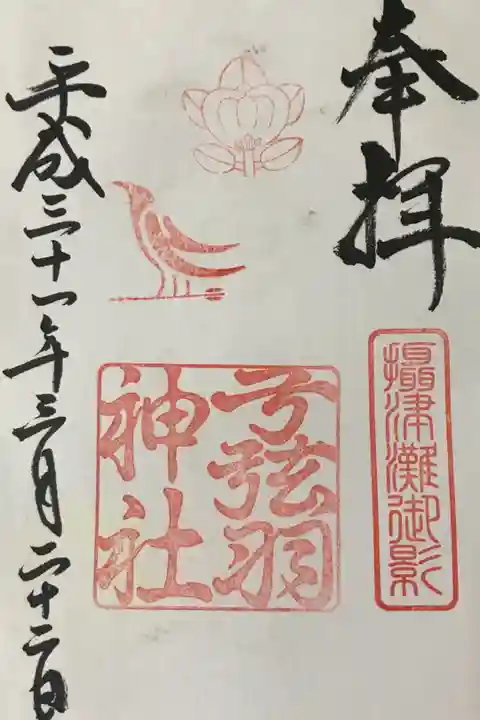 奉拝
攝津灘御影
弓弦羽
神社
平成三十一年三月二十二日